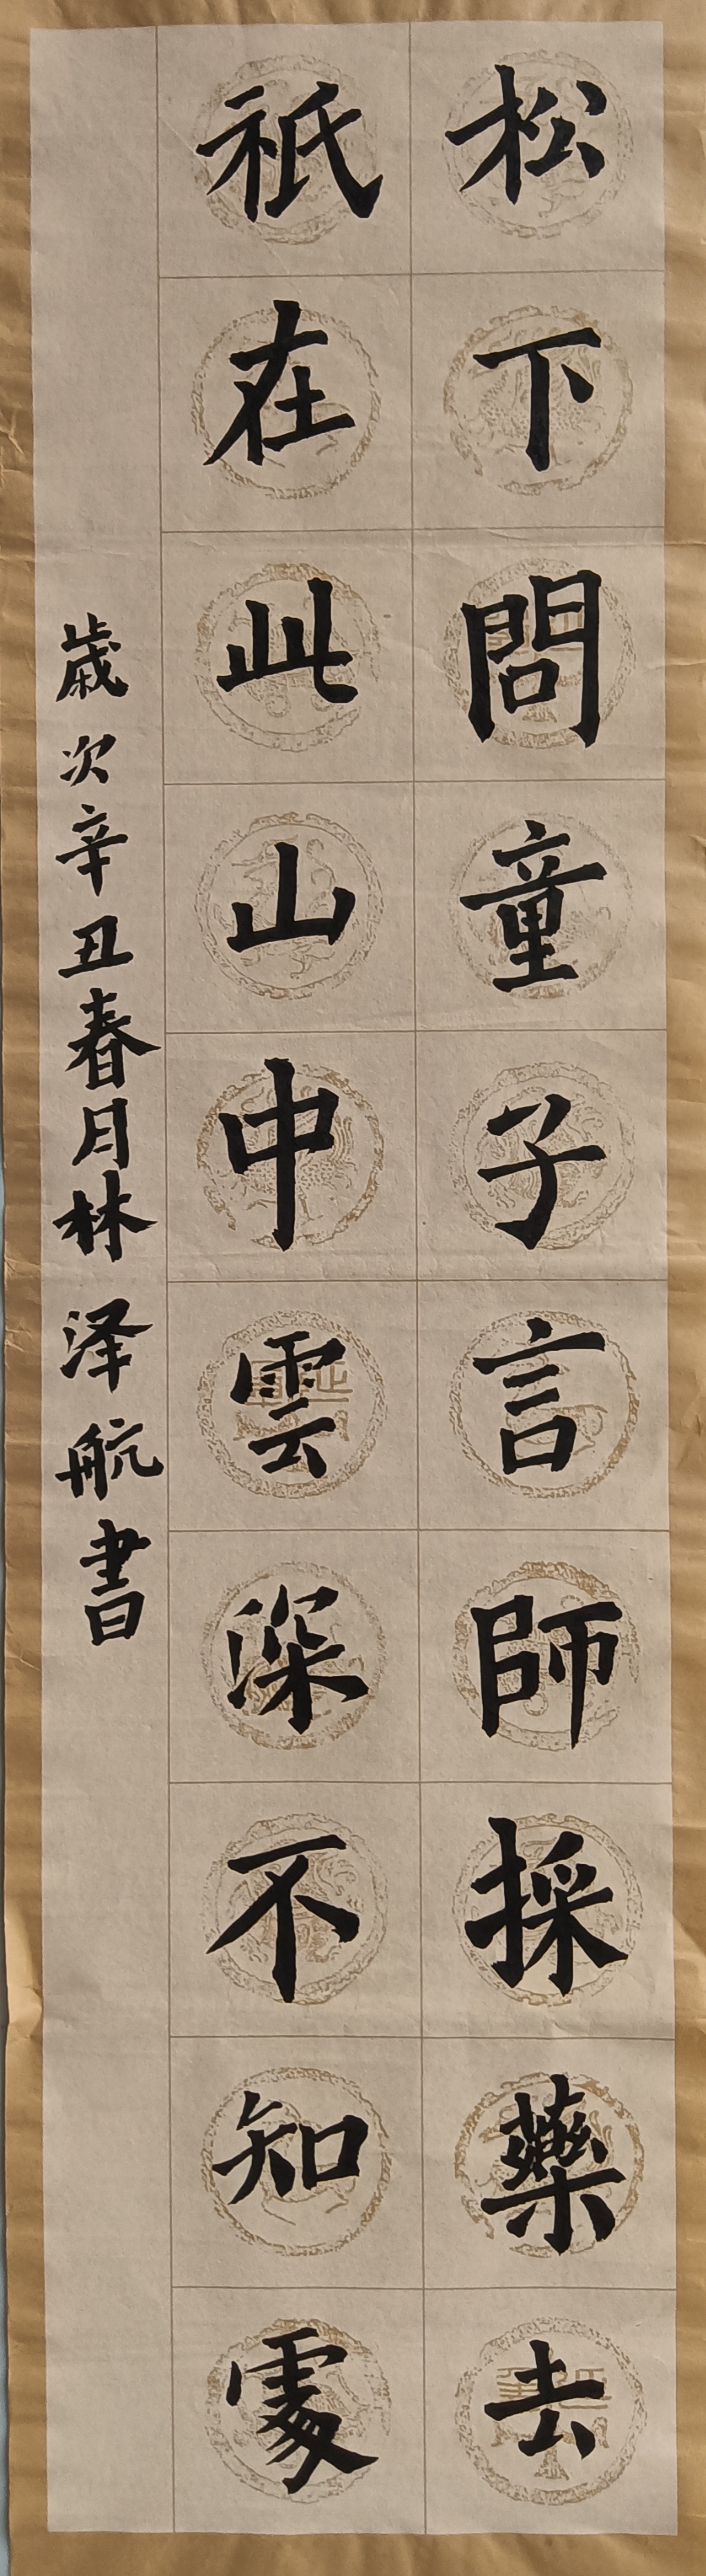 松下問童子言師採藥去
祇在此山中雲深不知處
歲次辛丑春月林泽航書